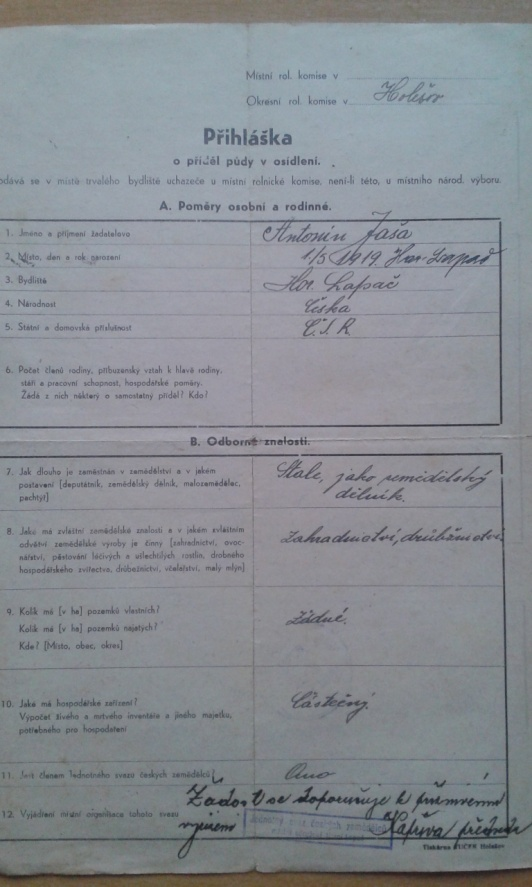 Místní rol. komise v
Okresní rol. komise v Holešov
Přihláška
o příděl půdy v osídlení.
odává se v místě trvalého bydliště uchazeče u místní rolnické komise, není-li této, u místního národ. výboru.
A. Poměry osobní a rodinné.
1. Jméno a příjmení žadatelovo Antonín Jaša
2. Místo, den a rok narození 1/5 1919 Hor. Lapač
3. Bydliště Hor. Lapač
4. Národnost Česká
5. Státní a domovská příslušnost Č.S.R.
6. Počet členů rodiny, příbuzenský vztah k hlavě rodiny,
stáří a pracovní schopnost, hospodářské poměry.
Žádá z nich některý o samostatný příděl? Kdo?
B. Odborné znalosti.
7. Jak dlouho je zaměstnán v zemědělství a v jakém Stále, jako zemědělský
postavení [deputátník, zemědělský dělník, malozemědělec, dělník.
pachtýř]
8. Jaké má zvláštní zemědělské znalosti a v jakém zvláštním zahradnictví, drůbežnictví
odvětví zemědělské výroby je činný [zahradnictví, ovoc-
nářství, pěstování léčivých a ušlechtilých rostlin, drobného
hospodářského zvířectva, drůbežnictví, včelařství, malý mlýn]
9. Kolik má [v ha] pozemků vlastních? žádné.
Kolik má [v ha] pozemků najatých?
Kde? [Místo, obec, okres]
10. Jaké má hospodářské zařízení? Částečný.
Výpočet živého a mrtvého inventáře a jiného majetku,
potřebného pro hospodaření
11. Jest členem Jednotného svazu českých zemědělců Ano
Žádost se doporučuje k příznivému
12. Vyjádření místní organisace tohoto svazu vyřízení
Jednotný svaz českých zemědělců
Kopřiva předseda
Tiskárna KUČEK Holešov